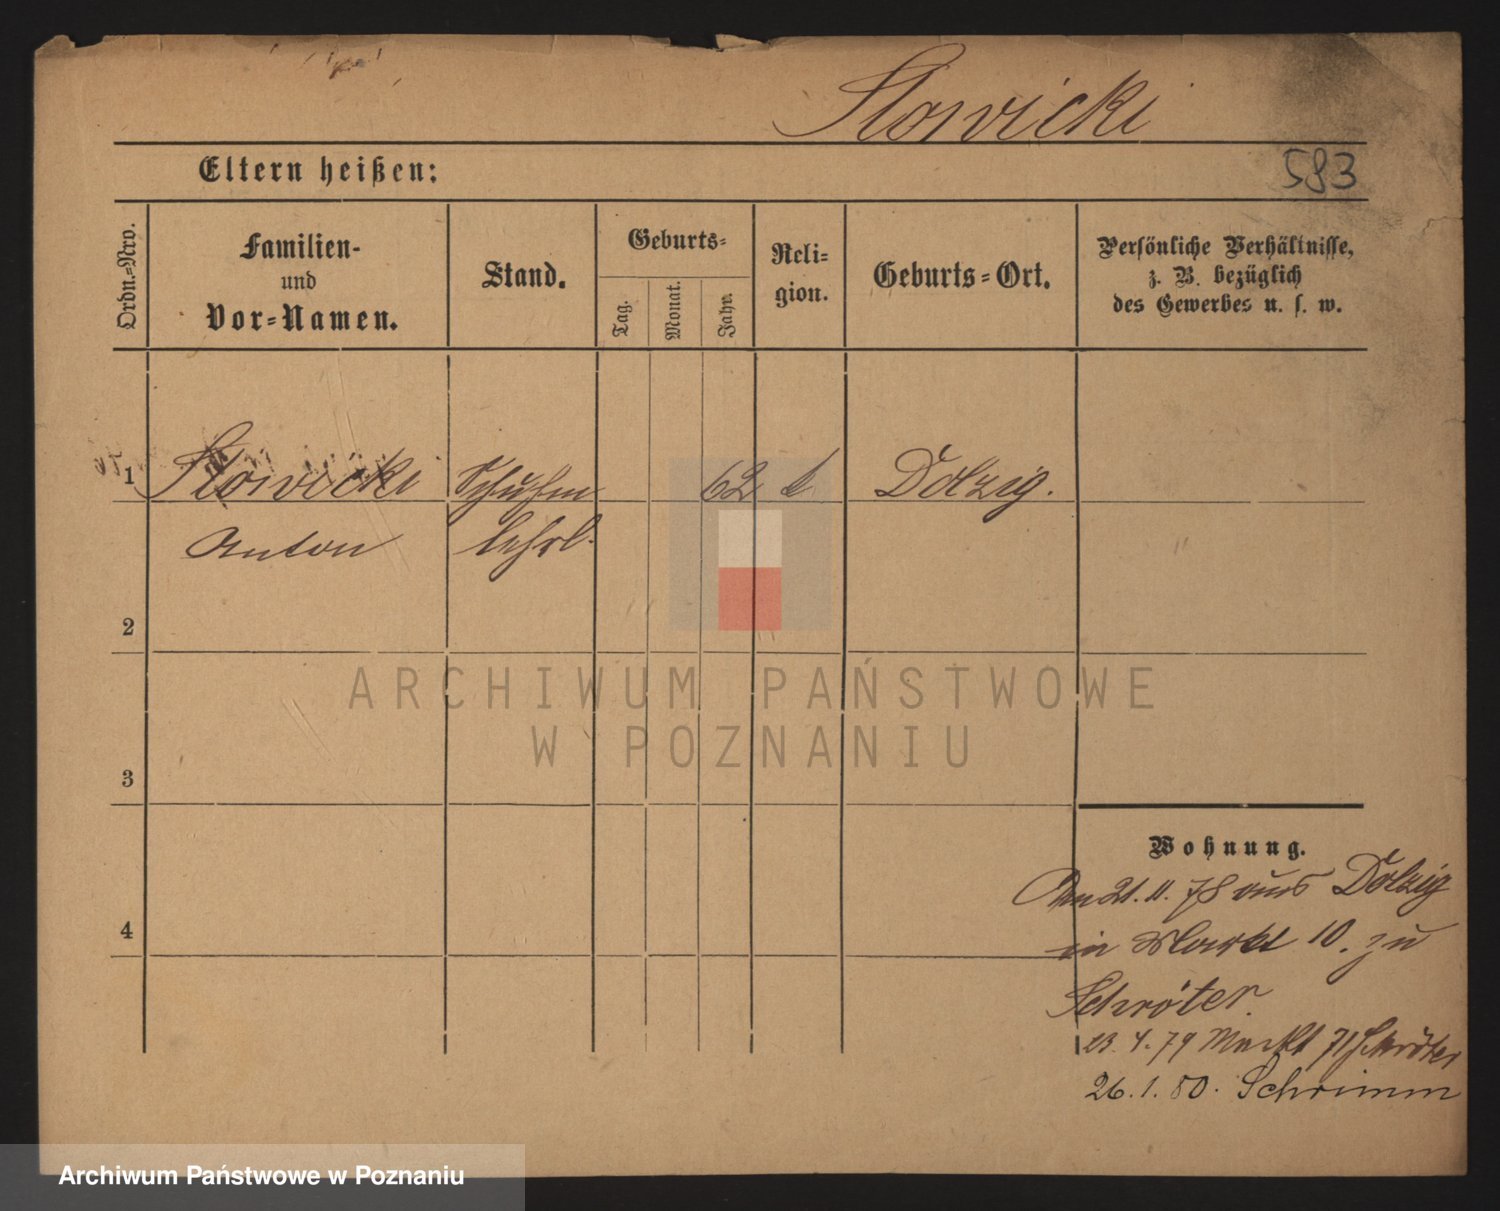 Slowicki
Eltern heißen:
583
Ordn.-Nro.
Familien-
und
Vor-Namen.
Stand.
Geburts-
Tag.
Monat.
Jahr.
Reli-
gion.
Geburts-Ort.
Persönliche Verhältnisse,
z. B. bezüglich
des Gewerbes u. s. w.
1 Slowicki Schuhm 62 k Dolzig.
Anton lehrl.
2
ARCHIWUM PAŃSTWOWE
W POZNANIU
3
Wohnung.
4
Am 21. 11. 78 aus Dolzig
in Markt 10. zu
Schröter.
23. 4. 79 Markt 71 Schröter
26. 1. 80. Schrimm
Archiwum Państwowe w Poznaniu